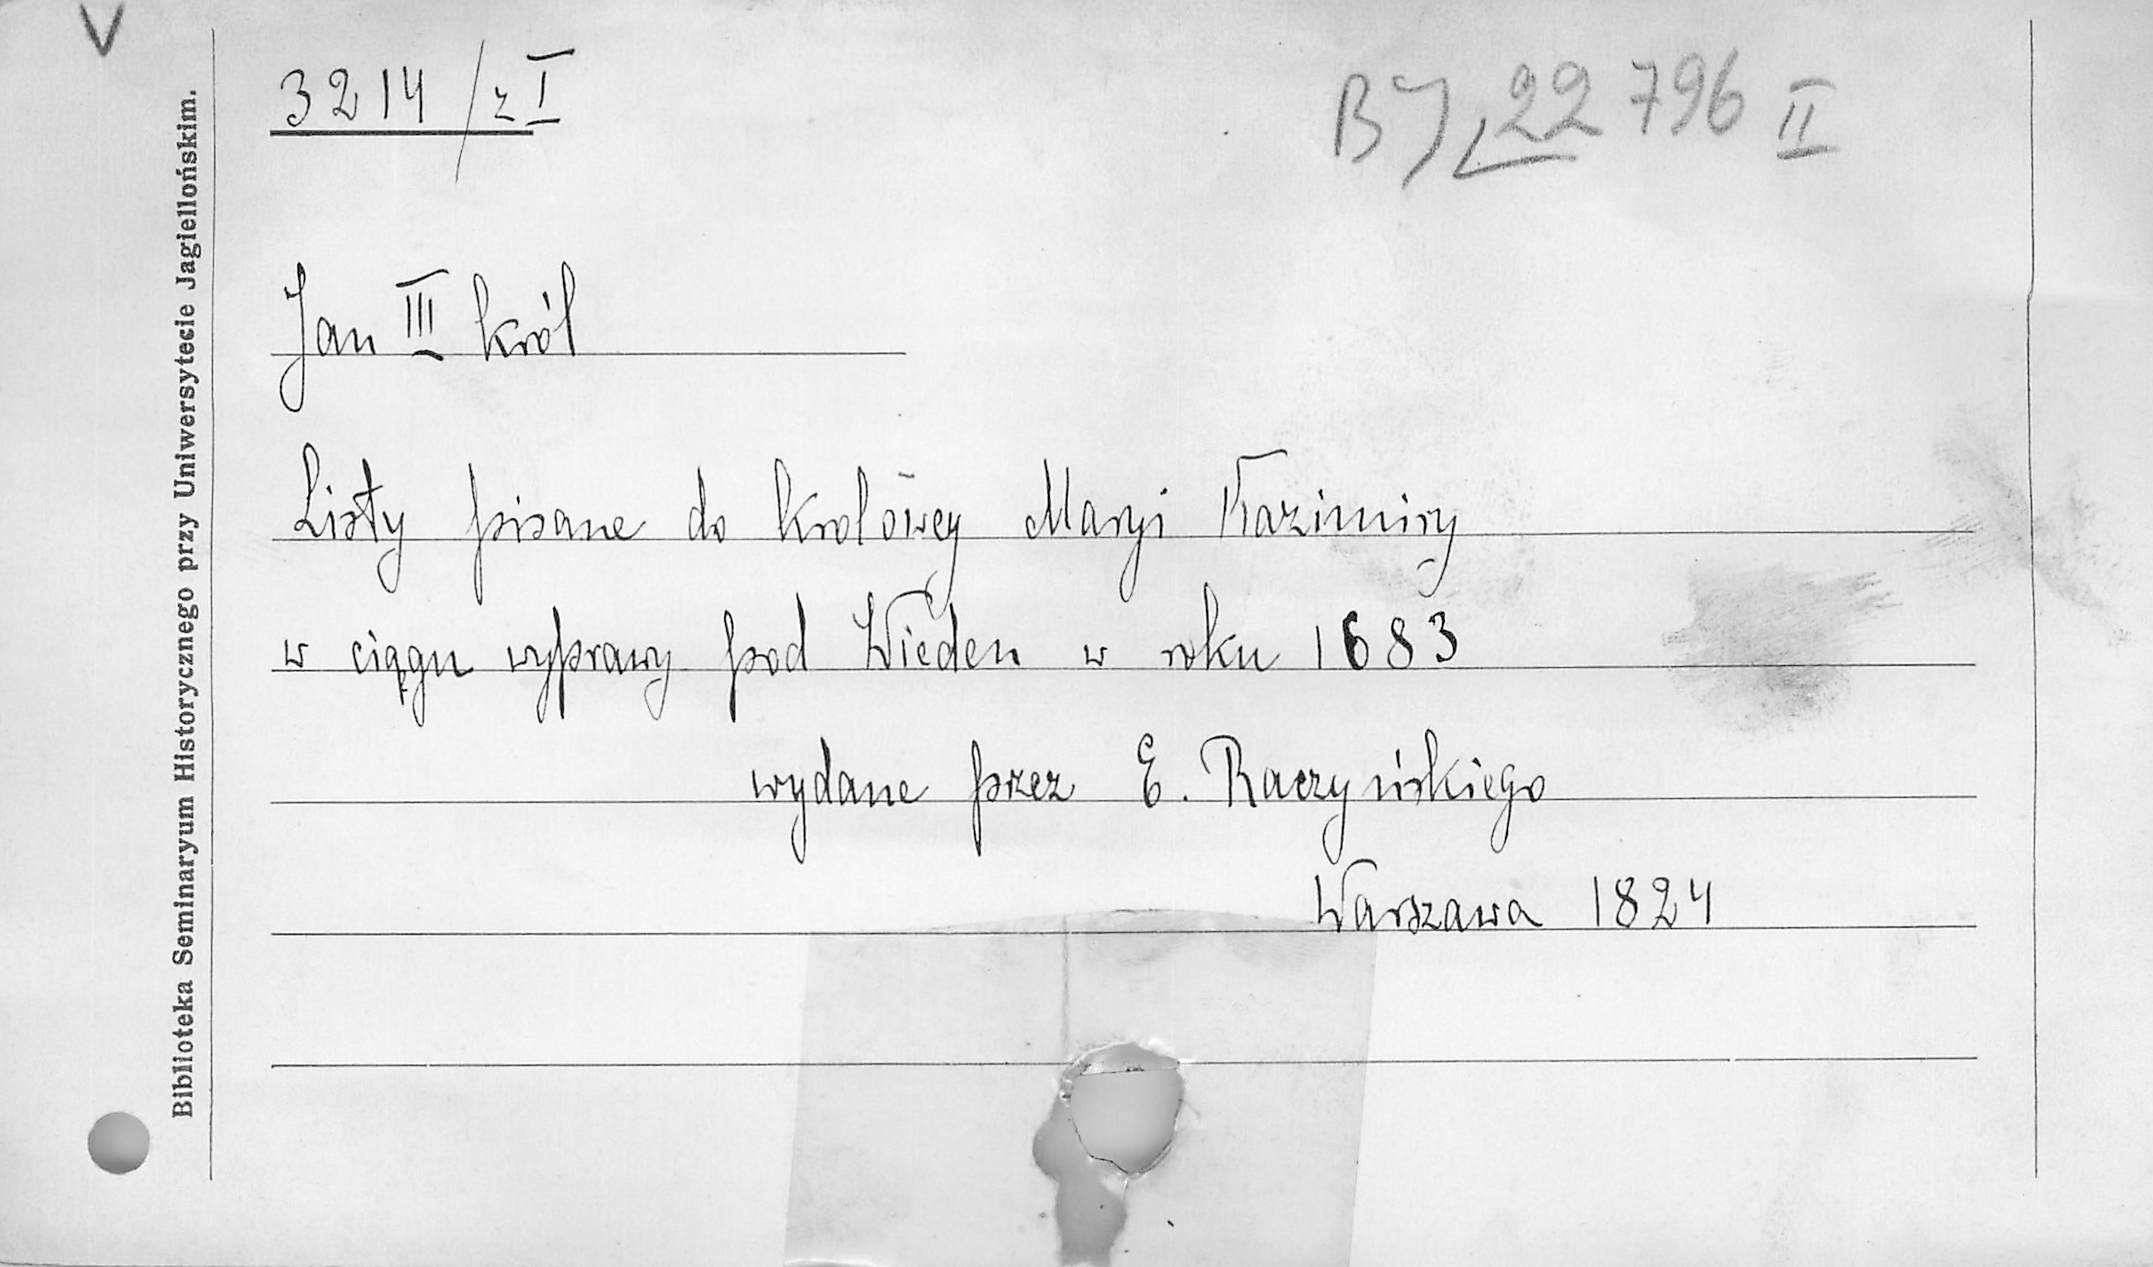 V
3214/z I
BJ, 22 796 II
Jan III król
Listy pisane do Krolowey Maryi Kazimiry
w ciągu wyprawy pod Wieden w roku 1683
wydane przez E. Raczyńskiego
Warszawa 1824
Biblioteka Seminaryum Historycznego przy Uniwersytecie Jagiellońskim.